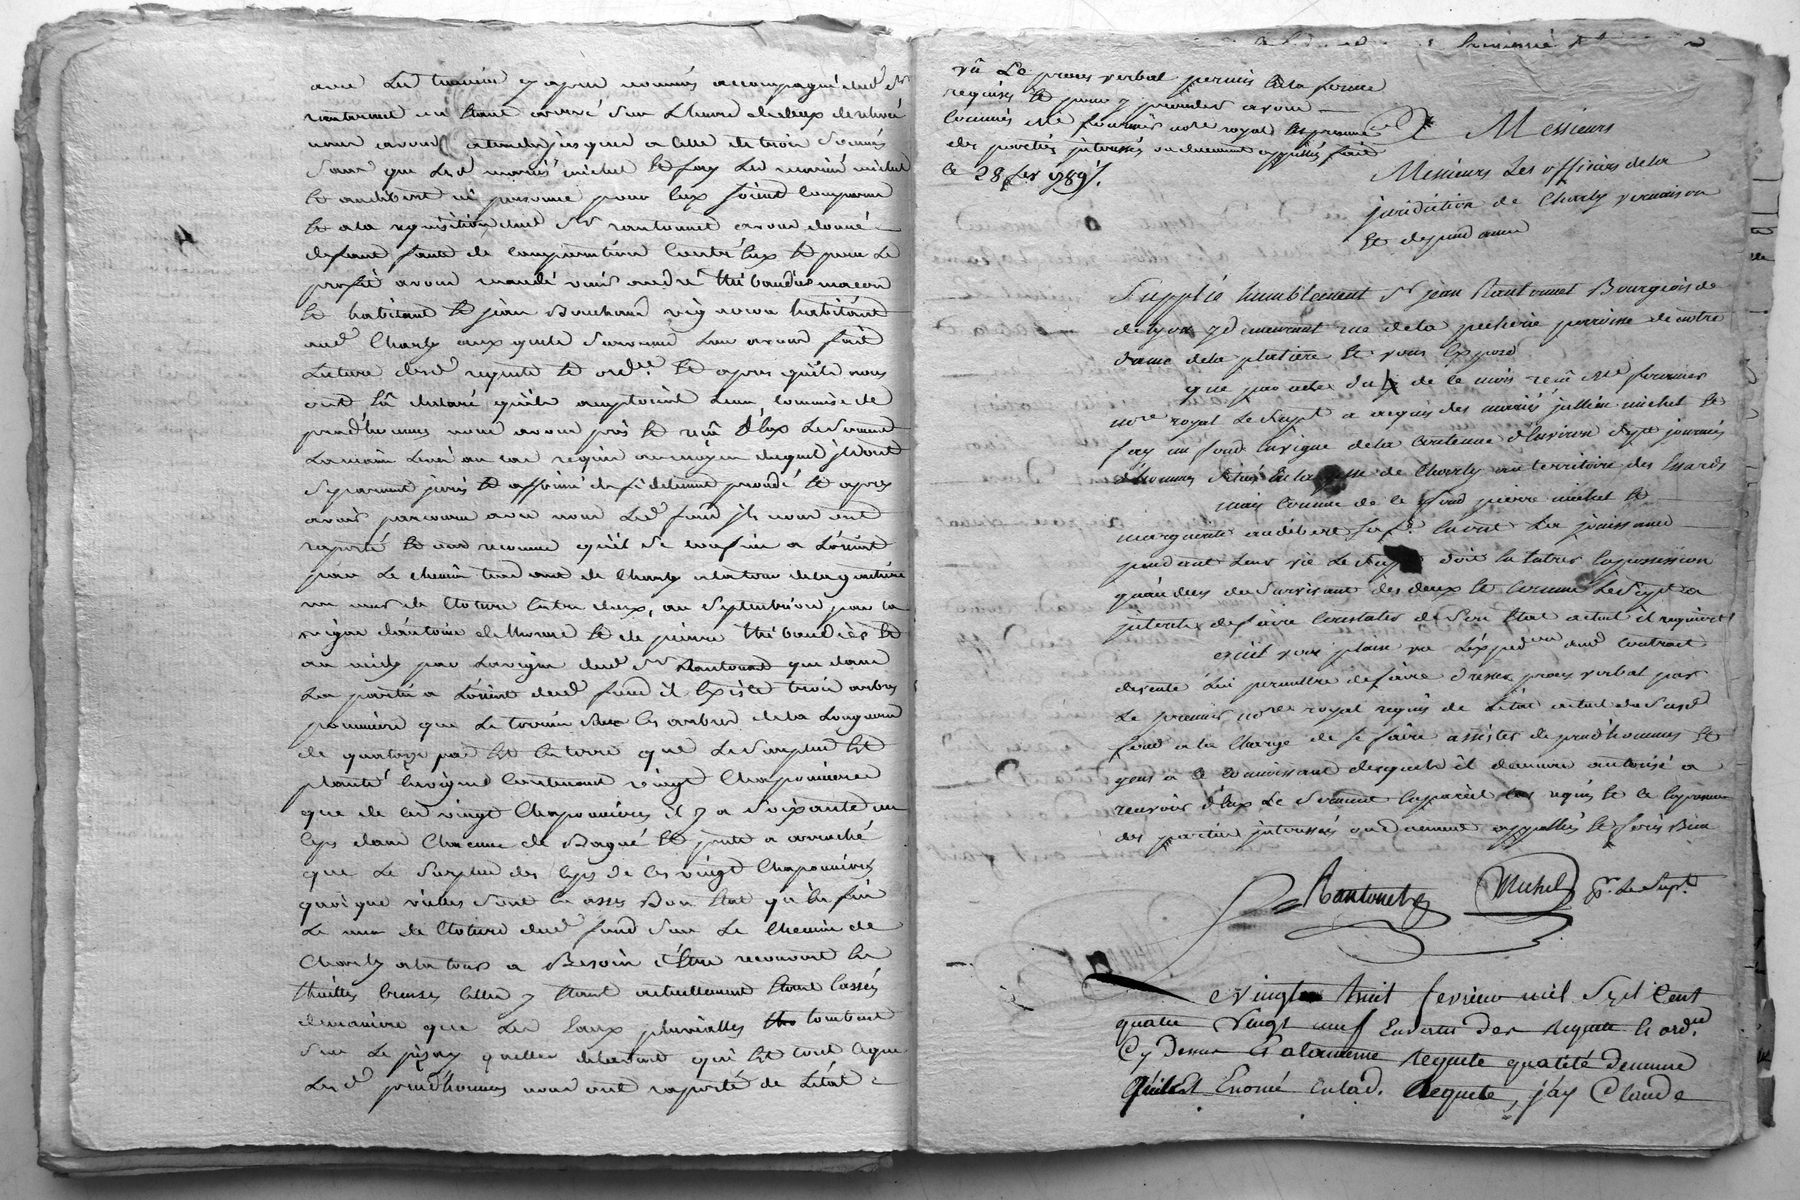 avec Les temoins cy apres nommés accompagné dud sr
rantonnet en étant arrivé sur L'heure de deux de relevé
nous avons attendu jusques a celle de trois sonnés
sans que Lesd mariés michel et fay Les mariés michel
et audibert ni personne pour eux soient comparus
et a la requisition dud sr rantonnet avons donné
defaut faute de comparution contr'eux et pour Le
profit avons mandé venir andré thibaudier macon
et habitant et jean Bouchard vigneron habitant
aud Charly aux quels serment Leur avons fait
Lecture desd requete et ordce et apres qu'ils nous
ont dit declaré qu'ils acceptoient Leur commise de
prud'hommes nous avons pris et recu d'eux Le serment
La main levé au cas requis au moyen duquel ils ont
separement juré et affirmé de fidelement proceder et apres
avoir parcouru avec nous Led fond ils nous ont
raporté et avons reconnu qu'il se confine a L'orient
par Le chemin tendant de Charly a la tour de la
un mur de cloture entre deux, au septentrion par la
vigne d'antoine et de pierre thibaudier et
au midy par La vigne dud sr Rantonnet que dans
La partie a L'orient dud fond il existe trois arbres
pommiers que Le terrein ces arbres de la Longueur
de quatorze pas est en terre que Le surplus est
planté en vigne contenant vingt Chaponnieres
que de ces vingt Chaponnieres il y a soixante un
ceps dans Chacune de Bagué et jette a arraché
que Le surplus des ceps de ces vingt Chaponnieres
quoique vieilles sont en assés Bon Etat qu'enfin
Le mur de cloture dud fond sur Le Chemin de
Charly a la tour a Besoin d'être recouvert en
thuilles creuses celles y étant actuellement étant cassés
de maniere que Les Eaux pluvialles tombent
sur Le pizay quelles delavent qui est tout ce que
Lesd prud'hommes nous ont raporté de L'état
vû Le procès verbal permis en la forme
requise et pour y proceder avons
commis Me fournier nore royal en presence
des parties interessés ou duement appellés fait
ce 28 fer 1789.
A Messieurs
Messieurs Les officiers de la
jurisdiction de Charly vernaison
et dependances
Supplie humblement sr jean Rantonnet Bourgeois de
de Lyon y demeurant rue de la pecherie parroisse de notre
dame de la platiere et vous Expose
que par acte du de ce mois recû Me fournier
nore royal Le supt a acquis des mariés jullien michel et
fay un fond en vigne de la contenue d'Environ sept journés
d'hommes situé en la psse de Charly au territoire des Essards
mais comme de ce fond pierre michel et
marguerite audibert sa fe. en ont La jouissance
pendant Leur vie Le supt doit en entrer en possession
qu'au deces du survivant des deux et comme Le supt a
interet de faire constater de son Etat actuel il requiert
a ce qu'il vous plaise vu L'expedon dud contract
de vente Lui permettre de faire dresser procès verbal par
Le premier nore royal requis de L'état actuel du susd
fond a la Charge de se faire assister de prud'hommes et
gens a ce connoissant desquels il demeure autorisé a
recevoir d'eux Le serment en pareil cas requis et en presence
des parties interessés ou duement appellés et ferés Bien
Rantonnet Michel pr. Le Supt.
Ce vingt huit fevrier mil Sept Cent
quatre vingt neuf En vertu des Requete et ordce
Cy Dessus Et a la meme Requete qualité demeure
Quil est Enoncé en lad. Requete, j'ay Claude